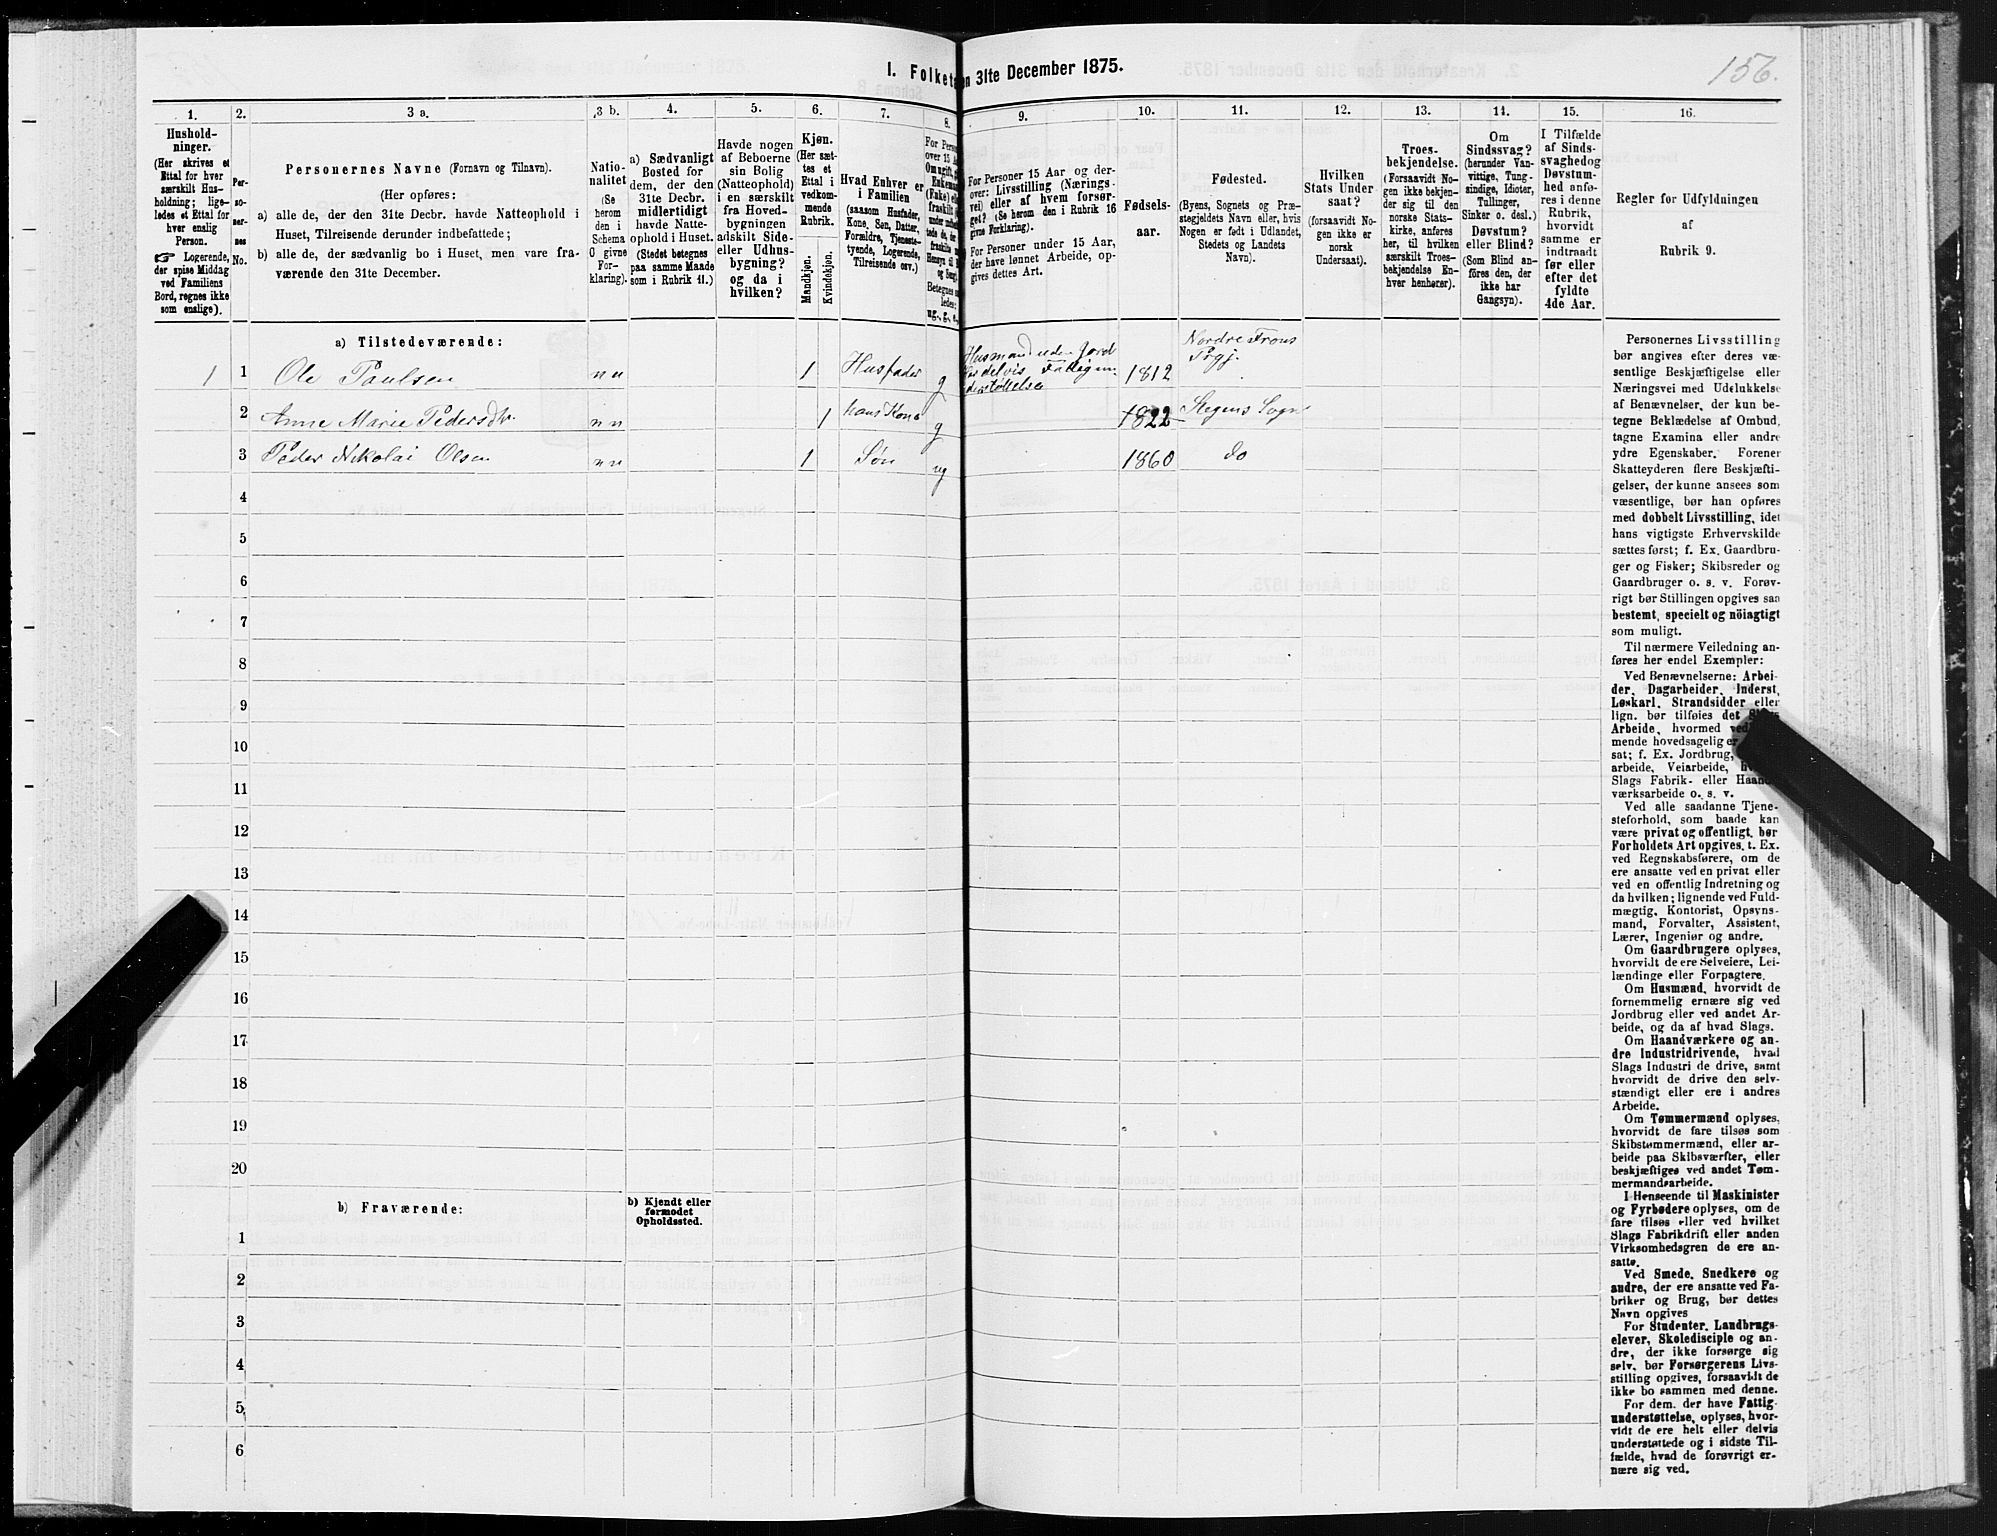 156.
I. Folketæ
n 31te December 1875.
1.
2.
3 a.
3 b.
4.
5.
6.
7.
8.
9.
10.
11.
12.
13.
14.
15.
16.
Hushold-
ninger.
(Her skrives et
Ettal for hver
særskilt Hus-
holdning; lige-
ledes et Ettal for
hver enslig
Person.
☞ Logerende,
der spise Middag
ved Familiens
Bord, regnes ikke
som enslige).
Per-
so-
ner-
nes
No.
Personernes Navne (Fornavn og Tilnavn).
(Her opføres:
a) alle de, der den 31te Decbr. havde Natteophold i
Huset, Tilreisende derunder indbefattede;
b) alle de, der sædvanlig bo i Huset, men vare fra-
værende den 31te December.
Natio-
nalitet
(Se
herom
den i
Schema
O givne
For-
klaring).
a) Sædvanligt
Bosted for
dem, der den
31te Decbr.
midlertidigt
havde Natte-
ophold i Huset.
(Stedet betegnes
paa samme Maade
som i Rubrik 11.)
Havde nogen
af Beboerne
sin Bolig
(Natteophold)
i en særskilt
fra Hoved-
bygningen
adskilt Side-
eller Udhus-
bygning?
og da i
hvilken?
Kjøn.
(Her sæt-
tes et
Ettal i
vedkom-
mende
Rubrik.
Mandkjøn.
Kvindekjøn.
Hvad Enhver er
i Familien
(saasom Husfader,
Kone, Søn, Datter,
Forældre, Tjeneste-
tyende, Logerende,
Tilreisende osv.)
For Pers
over 15 A
Om ugift,
Enkema
(Enke) el
fraskilt
og Seng).
Betegnes
ledes:
ug., g., e.,
For Personer 15 Aar og der-
over: Livsstilling (Nærings-
vei) eller af hvem forsør-
get? (Se herom den i Rubrik 16
givne Forklaring).
For Personer under 15 Aar,
der have lønnet Arbeide, op-
gives dettes Art.
Fødsels-
aar.
Fødested.
(Byens, Sognets og Præ-
stegjeldets Navn eller, hvis
Nogen er født i Udlandet,
Stedets og Landets
Navn).
Hvilken
Stats Under
saat?
(forsaavidt No-
gen ikke er
norsk
Undersaat).
Troes-
bekjendelse.
(Forsaavidt No-
gen ikke bekjen-
der sig til den
norske Stats-
kirke, anføres
her, til hvilken
særskilt Troes-
bekjendelse En-
hver henhører).
Om
Sindssvag?
(herunder Van-
vittige, Tung-
sindige, Idioter,
Tullinger,
Sinker o. desl.)
Døvstum?
eller Blind?
(Som Blind an-
føres den, der
ikke har
Gangsyn).
I Tilfælde
af Sinds-
svaghedog
Døvstum-
hed anfø-
res i denne
Rubrik,
hvorvidt
samme er
indtraadt
før eller
efter det
fyldte
4de Aar.
Regler for Udfyldningen
af
Rubrik 9.
a) Tilstedeværende:
1 1 Ole Paulsen nn 1 Husfader g Husmand uden Jord 1812 Nordre Frons Prgj.
2 Anne Marie Pedersdtr. nn 1 hans Kone g 1822 Stegens Sogn
3 Peder Nikolai Olsen nn 1 Søn ug 1860 do
4
5
6
7
8
9
10
11
12
13
14
15
16
17
18
19
20
b) Fraværende:
b) Kjendt eller
formodet
Opholdssted.
1
2
3
4
5
6
Personernes Livsstilling
bør angives efter deres væ-
sentlige Beskjæftigelse eller
Næringsvei med Udelukkelse
af Benævnelser, der kun be-
tegne Beklædelse af Ombud,
tagne Examina eller andre
ydre Egenskaber. Forener
Skatteyderen flere Beskjæfti-
gelser, der kunne ansees som
væsentlige, bør han opføres
med dobbelt Livsstilling, idet
hans vigtigste Erhvervskilde
sættes først; f. Ex. Gaardbru-
ger og Fisker; Skibsreder og
Gaardbruger o. s. v. Forøv-
rigt bør Stillingen opgives saa
bestemt, specielt og nöiagtigt
som muligt.
Til nærmere Veiledning an-
føres her endel Exempler:
Ved Benævnelserne: Arbei-
der, Dagarbeider, Inderst,
Løskarl, Strandsidder eller
lign. bør tilføies det Slags
Arbeide, hvormed ved
mende hovedsagelig er
sat; f. Ex. Jordbrug,
arbeide, Veiarbeide,
Slags Fabrik- eller Haand-
værksarbeide o. s. v.
Ved alle saadanne Tjene-
steforhold, som baade kan
være privat og offentligt, bør
Forholdets Art opgives, t. Ex.
ved Regnskabsførere, om de
ere ansatte ved en privat eller
ved en offentlig Indretning og
da hvilken; lignende ved Fuld-
mægtig, Kontorist, Opsyns-
mand, Forvalter, Assistent,
Lærer, Ingeniør og andre.
Om Gaardbrugere oplyses,
hvorvidt de ere Selveiere, Lei-
lændinge eller Forpagtere.
Om Husmænd, hvorvidt de
fornemmelig ernære sig ved
Jordbrug eller ved andet Ar-
beide, og da af hvad Slags.
Om Haandværkere og an-
dre Industridrivende, hvad
Slags Industri de drive, samt
hvorvidt de drive den selv-
stændigt eller ere i andres
Arbeide.
Om Tømmermænd oplyses,
hvorvidt de fare tilsøs som
Skibstømmermænd, eller ar-
beide paa Skibsværfter, eller
beskjæftiges ved andet Tøm-
mermandsarbeide.
I Henseende til Maskinister
og Fyrbødere oplyses, om de
fare tilsøs eller ved hvilket
Slags Fabrikdrift eller anden
Virksomhedsgren de ere an-
satte.
Ved Smede, Snedkere og
andre, der ere ansatte ved Fa-
briker og Brug, bør dettes
Navn opgives
For Studenter, Landbrugs-
elever, Skoledisciple og an-
dre, der ikke forsørge sig
selv, bør Forsørgerens Livs-
stilling opgives, forsaavidt de
ikke bo sammen med denne.
For dem, der have Fattig-
understøttelse, oplyses, hvor-
vidt de ere helt eller delvis
understøttede og i sidste Til-
fælde, hvad de forøvrigt er-
nære sig ved.